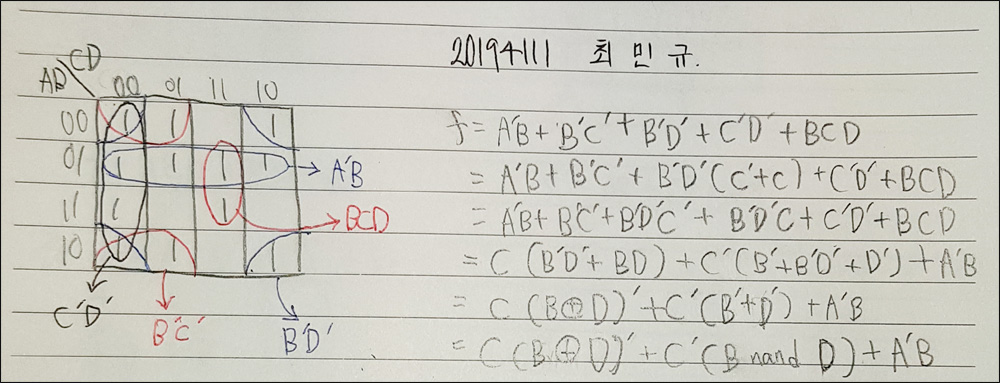 20194111 최민규.
CD
AB
00 01 11 10
00 1 1 1
01 1 1 1 1 → A'B
11 1 1 → BCD
10 1 1
C'D' B'C' B'D'
f = A'B + B'C' + B'D' + C'D' + BCD
= A'B + B'C' + B'D'(C'+C) + C'D' + BCD
= A'B + B'C' + B'D'C' + B'D'C + C'D' + BCD
= C (B'D' + BD) + C'(B'+B'D'+D') + A'B
= C (B⊕D)' + C'(B'+D') + A'B
= C (B⊕D)' + C'(B nand D) + A'B